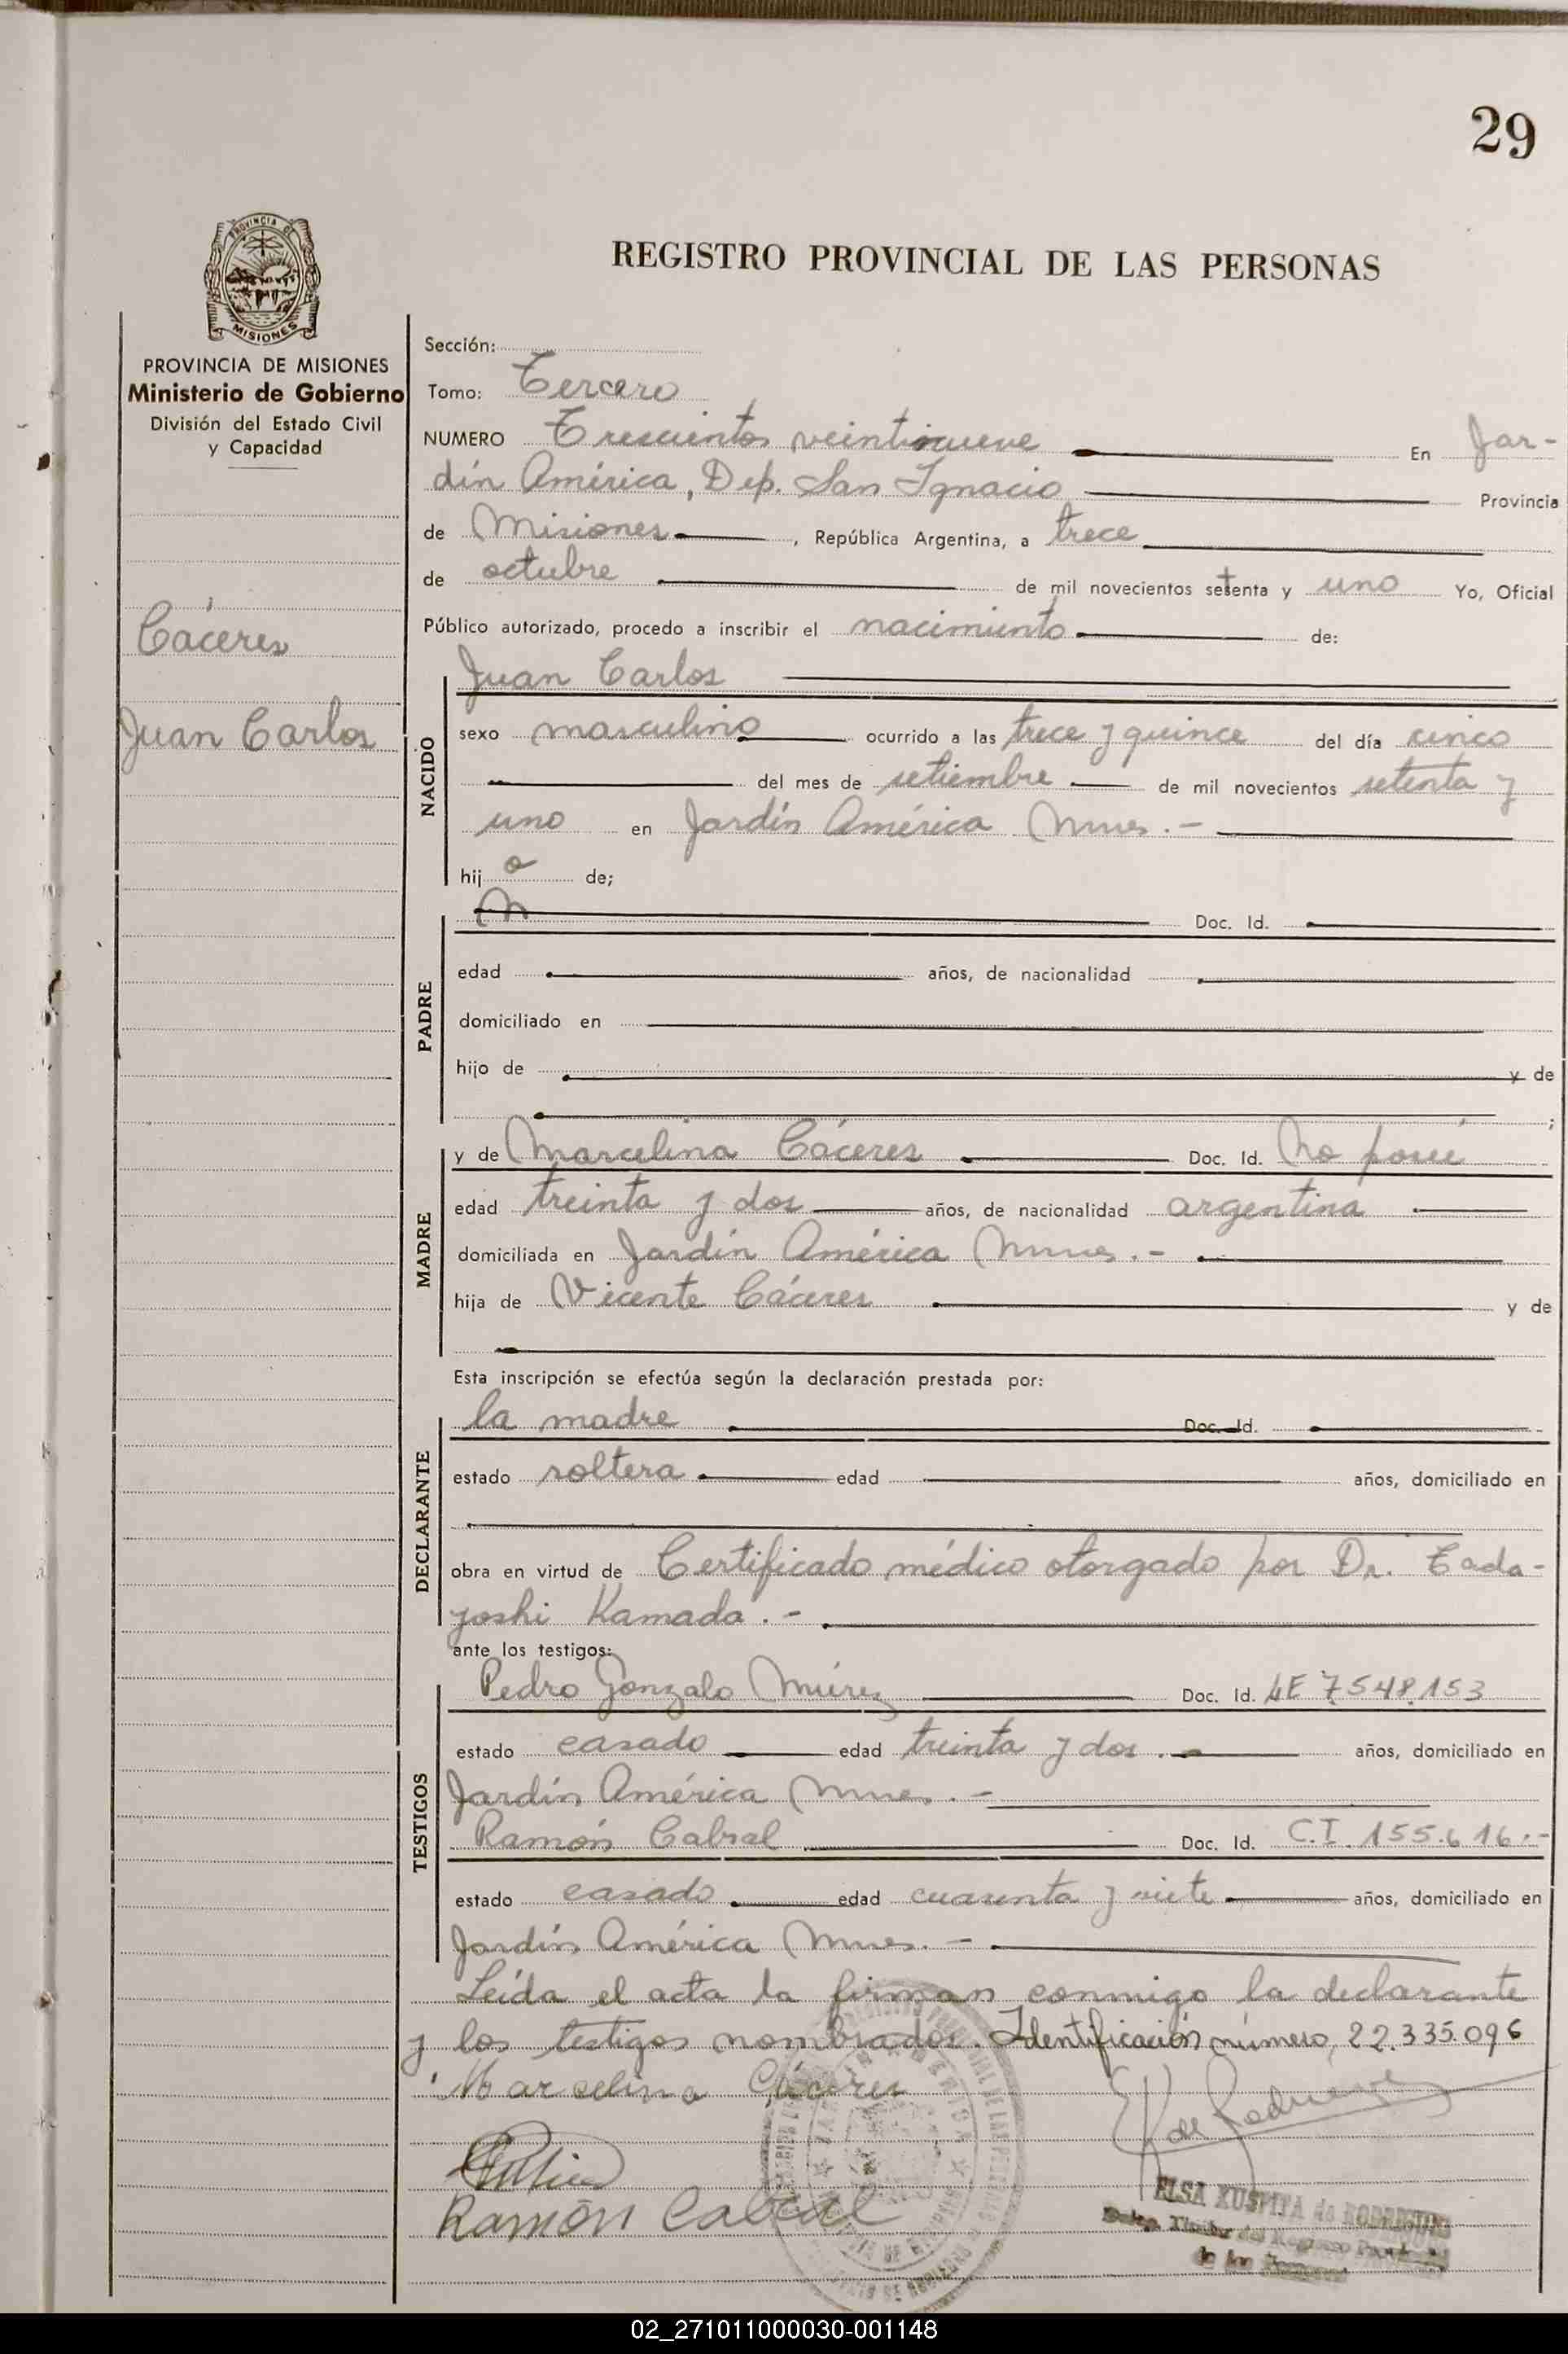 29
PROVINCIA DE
MISIONES
REGISTRO PROVINCIAL DE LAS PERSONAS
PROVINCIA DE MISIONES
Ministerio de Gobierno
División del Estado Civil
y Capacidad
Cáceres
Juan Carlos
Sección:
Tomo: Tercero
NUMERO Trescientos veintinueve En Jar-
dín América, Dep. San Ignacio Provincia
de Misiones, República Argentina, a trece
de octubre de mil novecientos setenta y uno Yo, Oficial
Público autorizado, procedo a inscribir el nacimiento de:
NACIDO
Juan Carlos
sexo masculino ocurrido a las trece y quince del día cinco
del mes de setiembre de mil novecientos setenta y
uno en Jardín América Mnes.-
hij o de;
PADRE
Doc. Id.
edad años, de nacionalidad
domiciliado en
hijo de y de
;
MADRE
y de Marcelina Cáceres Doc. Id. No posee
edad treinta y dos años, de nacionalidad argentina
domiciliada en Jardín América Mnes.-
hija de Vicente Cáceres y de
Esta inscripción se efectúa según la declaración prestada por:
DECLARANTE
la madre Doc. Id.
estado soltera edad años, domiciliado en
obra en virtud de Certificado médico otorgado por Dr. Tada-
yoshi Kamada.-
ante los testigos:
TESTIGOS
Pedro Gonzalo Doc. Id. LE 7.548.153
estado casado edad treinta y dos.- años, domiciliado en
Jardín América Mnes.-
Ramón Cabral Doc. Id. C.I. 155.616.-
estado casado edad cuarenta y siete años, domiciliado en
Jardín América Mnes.-
Leída el acta la firman conmigo la declarante
y los testigos nombrados. Identificación número, 22.335.096
Marcelina Cáceres
de Rodriguez
Ramón Cabral
ELSA de RODRIGUEZ
Titular del Registro
de las Personas
02_271011000030-001148